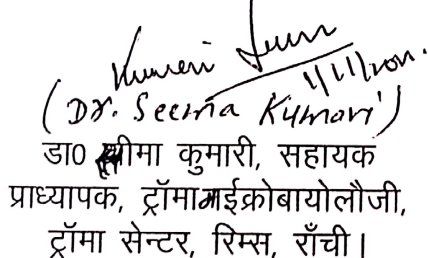 Kumari
(Dr. Seema Kumari)
डा0 सीमा कुमारी, सहायक
प्राध्यापक, ट्रॉमामाईक्रोबायोलौजी,
ट्रॉमा सेन्टर, रिम्स, राँची।